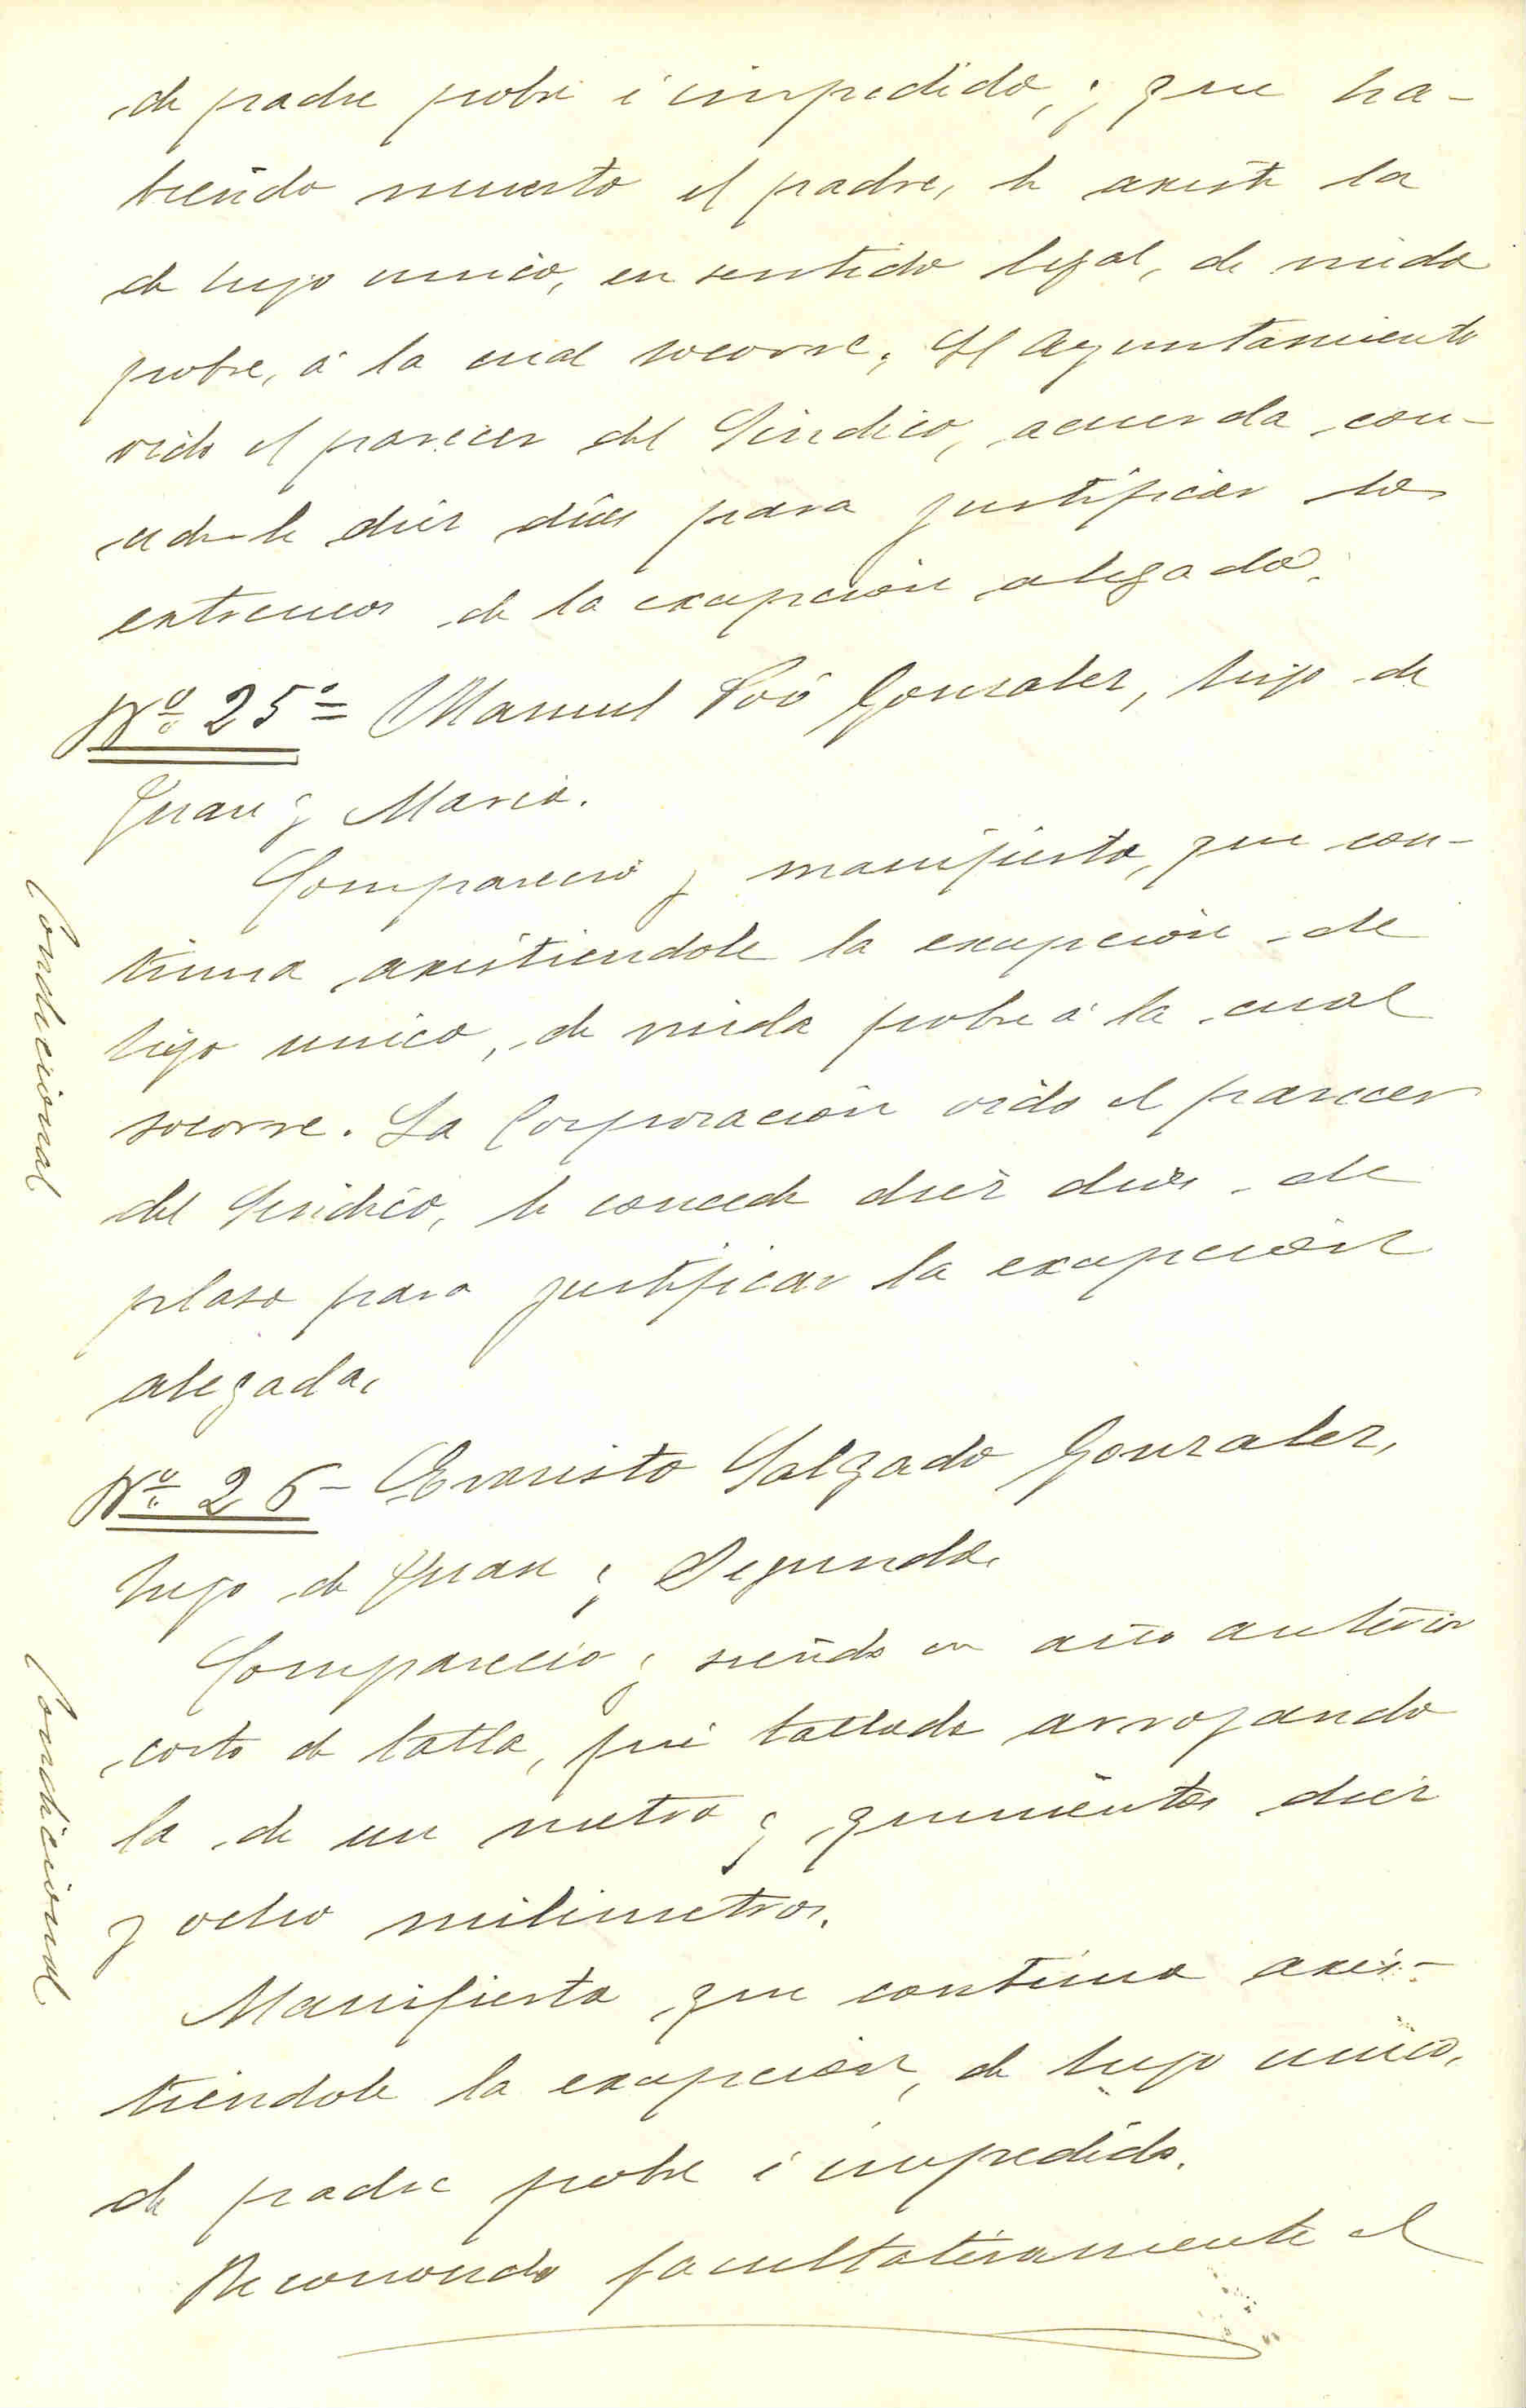 de padre pobre é impedido, y que ha-
biendo muerto el padre, le axiste la
de hijo unico, en sentido legal, de viuda
pobre, á la cual socorre, El Ayuntamiento
oido el parecer del Sindico, acuerda con-
cederle diez días para justificar los
extremos de la excepción alegada.
Nº 25º = Manuel Poó Gonzalez, hijo de
Juan y Maria.
Compareció y manifiesta, que con-
tinua axistiendole la excepción de
hijo unico, de viuda pobre á la cual
socorre. La Corporación oido el parecer
del Sindico, le concede diez dias de
plaso para justificar la excepción
alegada.
Condicional
Nº 26 - Evaristo Salgado Gonzalez,
hijo de Juan y Segunda.
Compareció y siendo en año anterior
corto de talla, fué tallado arrojando
la de un metro y quinientos diez
y ocho milimetros.
Manifiesta que continua axis-
tiendole la excepción, de hijo unico,
de padre pobre é impedido.
Reconocido facultativamente el
Condicional